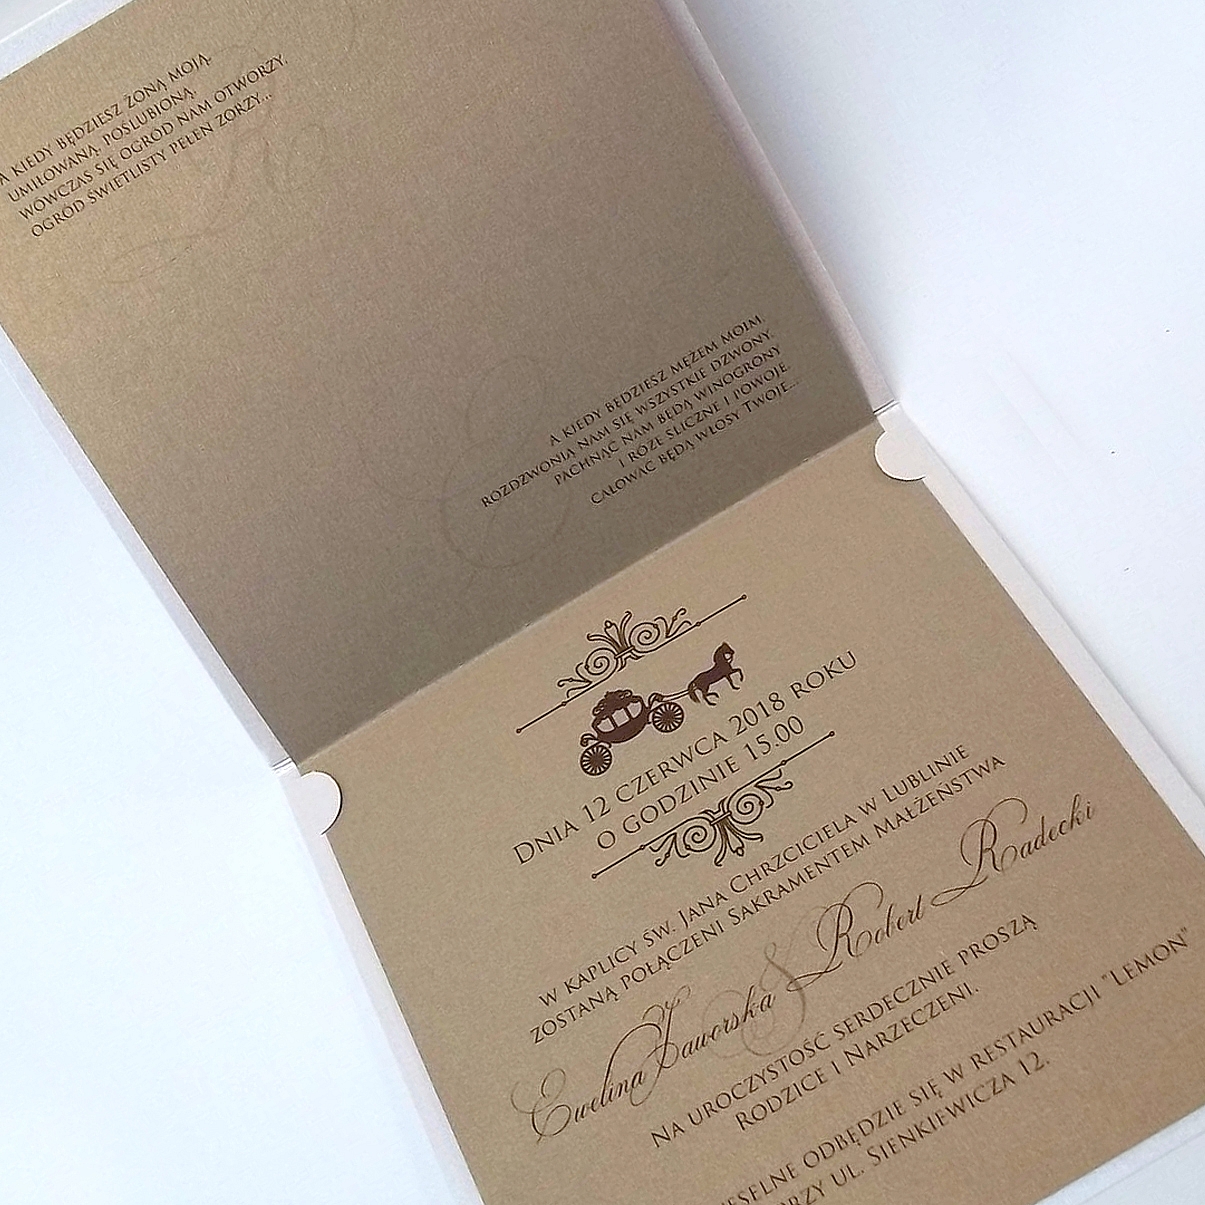 A KIEDY BĘDZIESZ ŻONĄ MOJĄ,
UMIŁOWANĄ, POŚLUBIONĄ,
WÓWCZAS SIĘ OGRÓD NAM OTWORZY,
OGRÓD ŚWIETLISTY PEŁEN ZORZY...
A KIEDY BĘDZIESZ MĘŻEM MOIM,
ROZDZWONIĄ NAM SIĘ WSZYSTKIE DZWONY.
PACHNĄC NAM BĘDĄ WINOGRONY
I RÓŻE ŚLICZNE I POWOJE.
CAŁOWAĆ BĘDĄ WŁOSY TWOJE...
DNIA 12 CZERWCA 2018 ROKU
O GODZINIE 15.00
W KAPLICY ŚW. JANA CHRZCICIELA W LUBLINIE
ZOSTANĄ POŁĄCZENI SAKRAMENTEM MAŁŻEŃSTWA
Ewelina Jaworska & Robert Radecki
NA UROCZYSTOŚĆ SERDECZNIE PROSZĄ
RODZICE I NARZECZENI.
ODBĘDZIE SIĘ W RESTAURACJI "LEMON"
UL. SIENKIEWICZA 12.